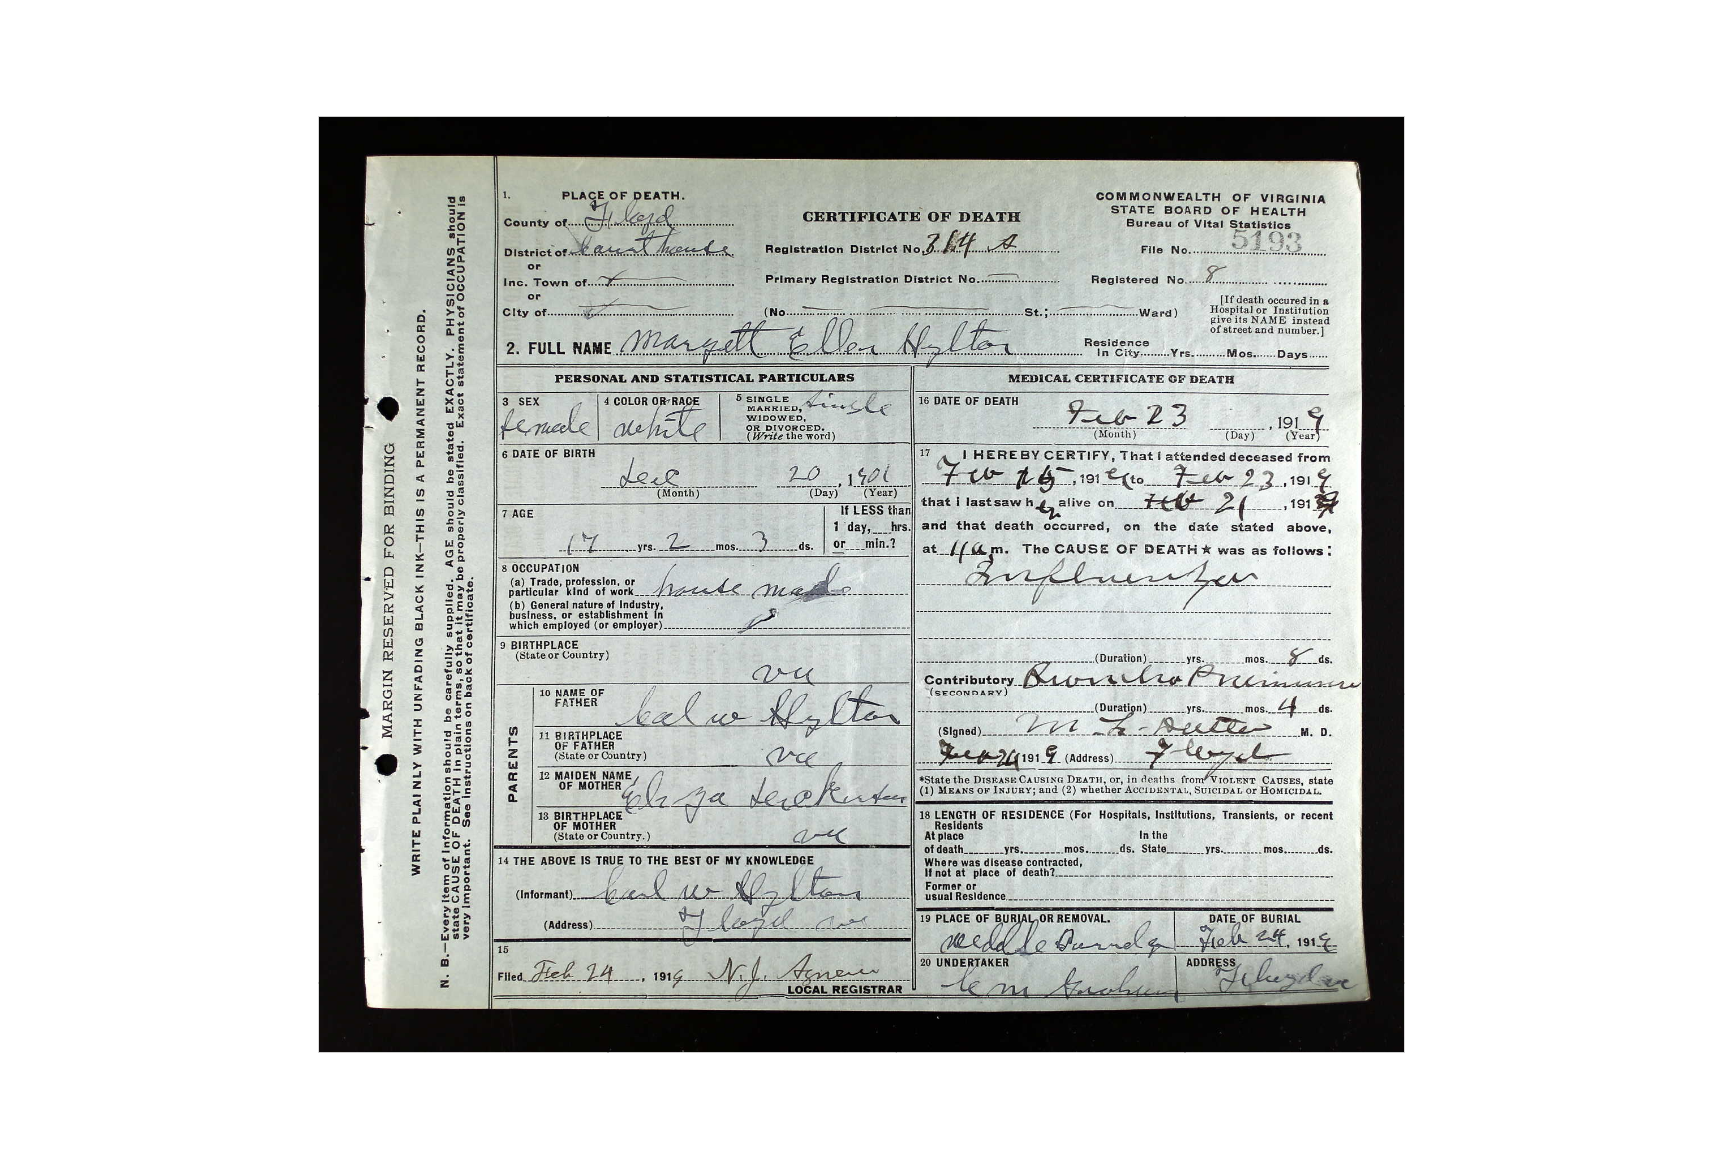 MARGIN RESERVED FOR BINDING
WRITE PLAINLY WITH UNFADING BLACK INK—THIS IS A PERMANENT RECORD.
N. B.—Every item of information should be carefully supplied. AGE should be stated EXACTLY. PHYSICIANS should
state CAUSE OF DEATH in plain terms, so that it may be properly classified. Exact statement of OCCUPATION is
very important. See instructions on back of certificate.
1. PLACE OF DEATH.
County of Floyd
District of Court house
or
Inc. Town of
or
City of
CERTIFICATE OF DEATH
Registration District No. 314 A
Primary Registration District No.
(No. St.; Ward)
COMMONWEALTH OF VIRGINIA
STATE BOARD OF HEALTH
Bureau of Vital Statistics
File No. 5193
Registered No. 8
[If death occured in a
Hospital or Institution
give its NAME instead
of street and number.]
2. FULL NAME Margett Ellen Hylton
Residence
In City Yrs. Mos. Days
PERSONAL AND STATISTICAL PARTICULARS
3 SEX
female
4 COLOR OR RACE
white
5 SINGLE
MARRIED,
WIDOWED,
OR DIVORCED.
(Write the word)
single
6 DATE OF BIRTH
Dec 20, 1901
(Month) (Day) (Year)
7 AGE
17 yrs. 2 mos. 3 ds.
If LESS than
1 day, hrs.
or min.?
8 OCCUPATION
(a) Trade, profession, or
particular kind of work house
(b) General nature of Industry,
business, or establishment in
which employed (or employer)
9 BIRTHPLACE
(State or Country)
va
PARENTS
10 NAME OF
FATHER
Carl w Hylton
11 BIRTHPLACE
OF FATHER
(State or Country)
va
12 MAIDEN NAME
OF MOTHER
Eliza Dickerson
13 BIRTHPLACE
OF MOTHER
(State or Country.)
va
14 THE ABOVE IS TRUE TO THE BEST OF MY KNOWLEDGE
(Informant) Carl w Hylton
(Address) Floyd va
15
Filed Feb 24, 1919 N. J. Agnew
LOCAL REGISTRAR
MEDICAL CERTIFICATE OF DEATH
16 DATE OF DEATH
Feb 23, 1919
(Month) (Day) (Year)
17 I HEREBY CERTIFY, That I attended deceased from
Feb 15, 1919 to Feb 23, 1919
that I last saw her alive on Feb 21, 1919
and that death occurred, on the date stated above,
at 11 a m. The CAUSE OF DEATH★ was as follows:
Influenza
(Duration) yrs. mos. 8 ds.
Contributory Broncho Pneumonia
(SECONDARY)
(Duration) yrs. mos. 4 ds.
(Signed) M. L. M. D.
Feb 24 1919 (Address) Floyd
*State the DISEASE CAUSING DEATH, or, in deaths from VIOLENT CAUSES, state
(1) MEANS OF INJURY; and (2) whether ACCIDENTAL, SUICIDAL or HOMICIDAL.
18 LENGTH OF RESIDENCE (For Hospitals, Institutions, Transients, or recent
Residents
At place In the
of death yrs. mos. ds. State yrs. mos. ds.
Where was disease contracted,
If not at place of death?
Former or
usual Residence
19 PLACE OF BURIAL OR REMOVAL.
DATE OF BURIAL
Feb 24, 1919
20 UNDERTAKER
ADDRESS
Floyd va